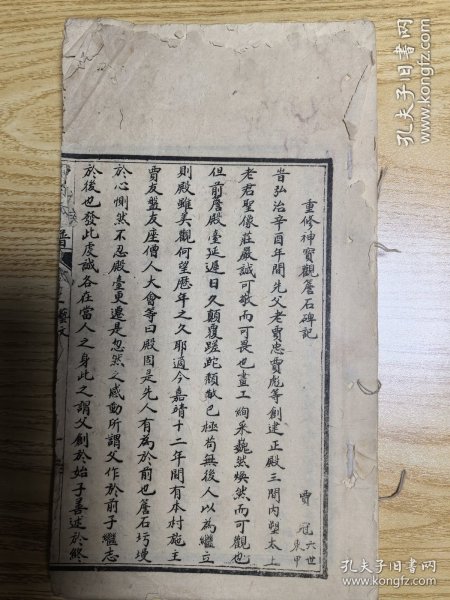 重修神寶觀簷石碑記
賈　冠六世東甲
昔弘治辛酉年間先父老賈忠賈彪等創建正殿三間內塑太上
老君聖像莊嚴誠可敬而可畏也畫工絢采巍然煥然而可觀也
但前簷殿臺延遲日久顛覆蹉跎頹歆已極苟無後人以為繼立
則殿雖美觀何望歷年之久耶適今嘉靖十二年間有本村施主
賈友盤友座僧人大會等曰殿因是先人有為於前也簷石圬墁
於心惻然不忍殿臺更遷是忽然之感動所謂父作於前子繼志
於後也發此虔誠各在當人之身此之謂父創於始子善述於終
晉
藝文
孔夫子旧书网
孔夫子旧书网
孔夫子旧书网